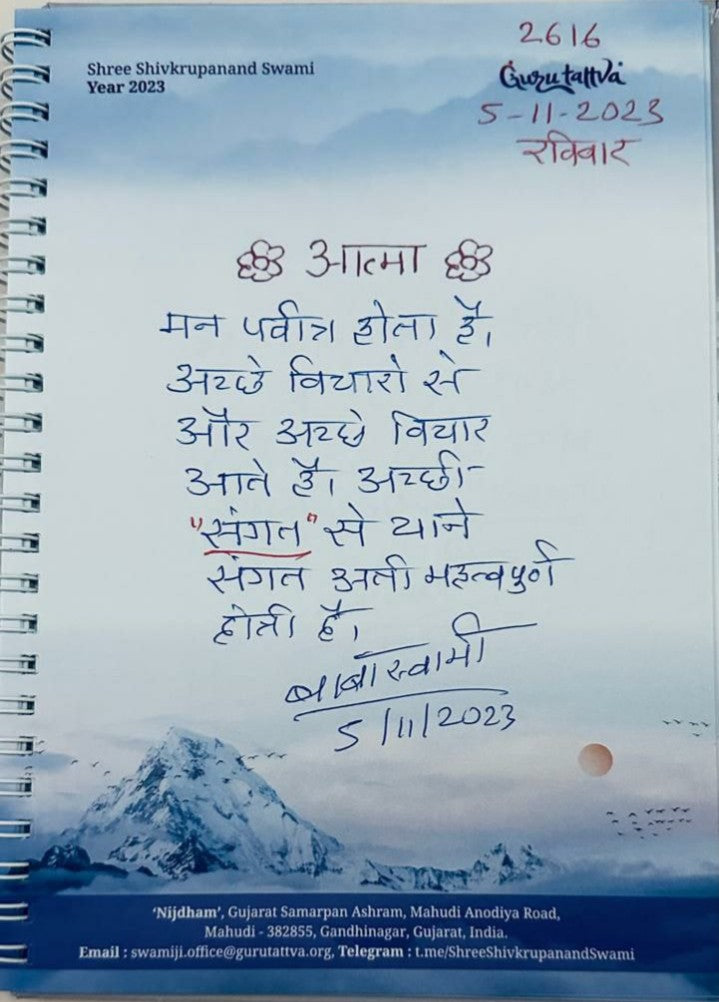 2616
Shree Shivkrupanand Swami
Year 2023
Gurutattva
5-11-2023
रविवार
आत्मा
मन पवीत्र होता है।
अच्छे विचारो से
और अच्छे विचार
आते है। अच्छी
"संगत" से याने
संगत अती महत्वपुर्ण
होती है।
बाबास्वामी
5/11/2023
'Nijdham', Gujarat Samarpan Ashram, Mahudi Anodiya Road,
Mahudi - 382855, Gandhinagar, Gujarat, India.
Email : swamiji.office@gurutattva.org, Telegram : t.me/ShreeShivkrupanandSwami